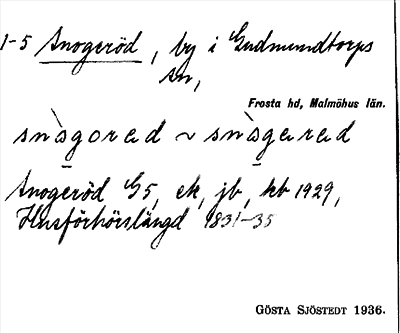 1-5 Snogeröd, by i Gudmundtorps
sn,
Frosta hd, Malmöhus län.
snògored ~ snògered
Snogeröd G5, ek, jb, kb 1929,
Husförhörslängd 1831-35
GÖSTA SJÖSTEDT 1936.